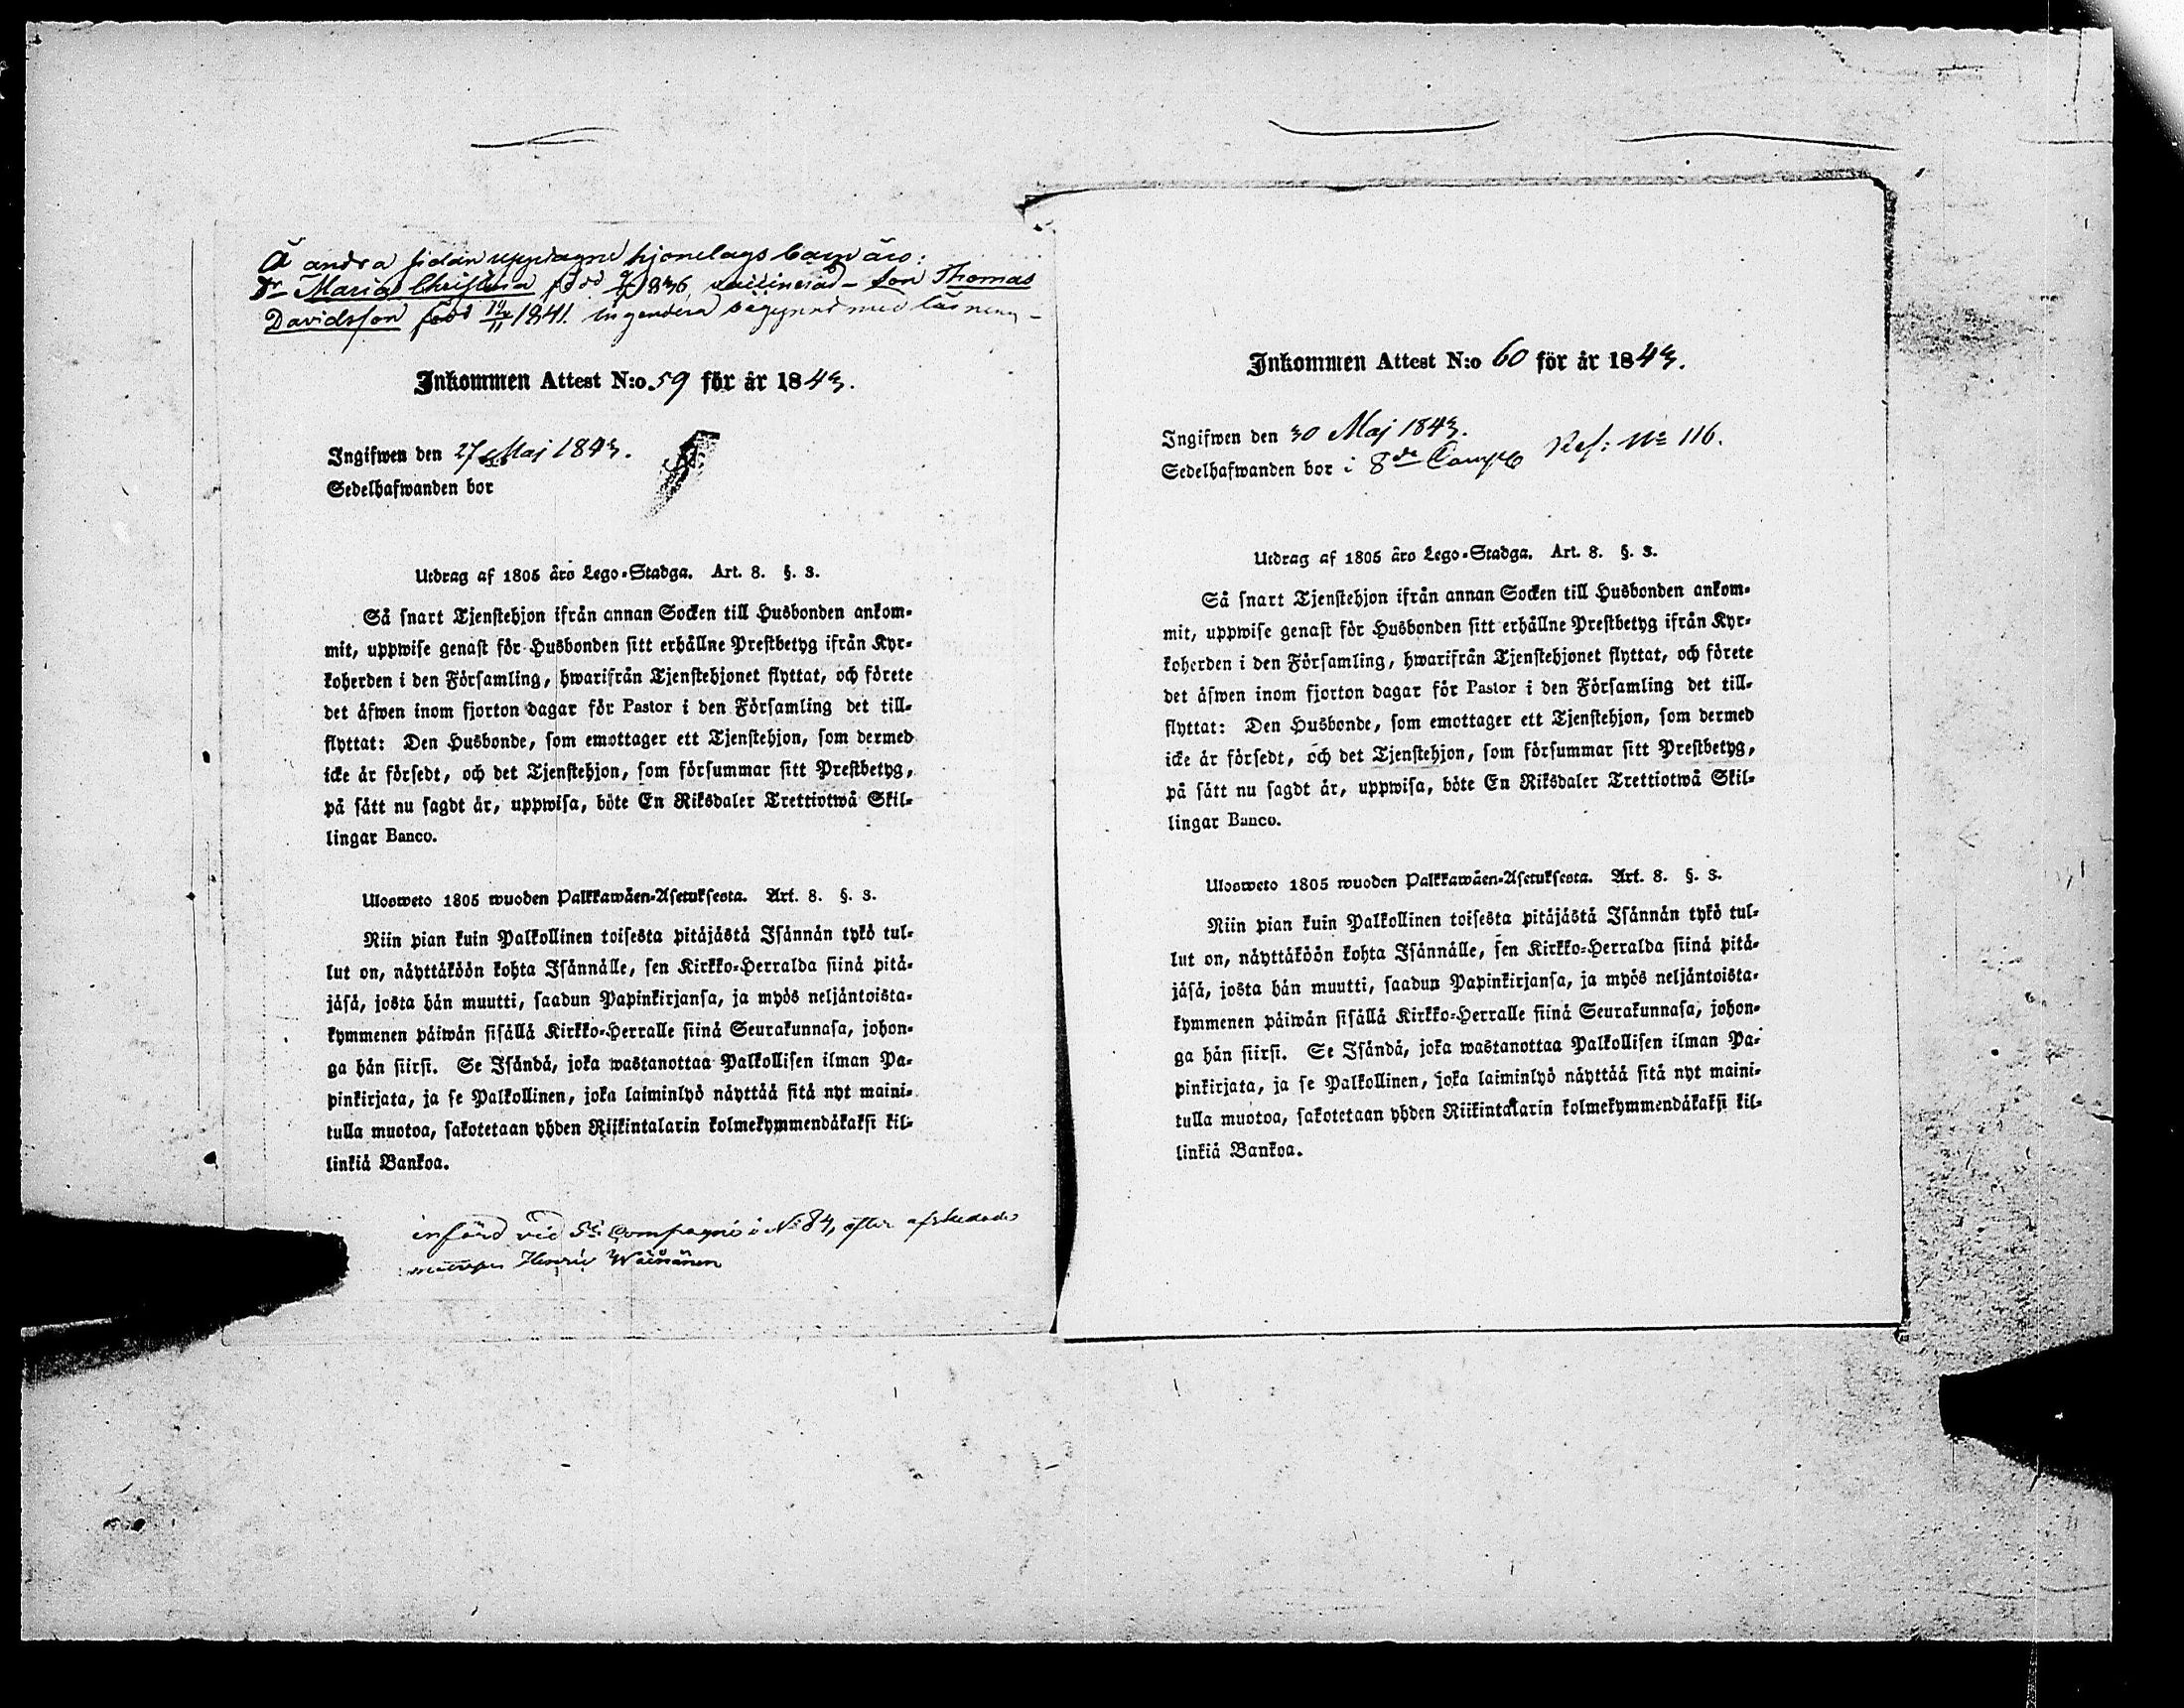 Å andra sidan uppdagne hjonelags barn äro:
Dr Maria Christina född 1836 vaccinerad – Son Thomas
Davidsson född 1841. ingendera begynnt med läsning –
Inkommen Attest N:o 59 för år 1843.
Ingifwen den 27 Maj 1843.
Sedelhafwanden bor
Utdrag af 1805 års Lego-Stadga. Art. 8. §. 3.
Så snart Tjenstehjon ifrån annan Socken till Husbonden ankom-
mit, uppwise genast för Husbonden sitt erhållne Prestbetyg ifrån Kyr-
koherden i den Församling, hwarifrån Tjenstehjonet flyttat, och förete
det äfwen inom fjorton dagar för Pastor i den Församling det till-
flyttat: Den Husbonde, som emottager ett Tjenstehjon, som dermed
icke är försedt, och det Tjenstehjon, som försummar sitt Prestbetyg,
på sätt nu sagdt är, uppwisa, böte En Riksdaler Trettiotwå Skil-
lingar Banco.
Ulosweto 1805 wuoden Palkkawäen-Asetuksesta. Art. 8. §. 3.
Niin pian kuin Palkollinen toisesta pitäjästä Isännän tykö tul-
lut on, näyttäköön kohta Isännälle, sen Kirkko-Herralda siinä pitä-
jäsä, josta hän muutti, saadun Papinkirjansa, ja myös neljäntoista-
kymmenen päiwän sisällä Kirkko-Herralle siinä Seurakunnasa, johon-
ga hän siirsi. Se Isändä, joka wastanottaa Palkollisen ilman Pa-
pinkirjata, ja se Palkollinen, joka laiminlyö näyttää sitä nyt maini-
tulla muotoa, sakotetaan yhden Riikintalarin kolmekymmendäkaksi kil-
linkiä Bankoa.
införd vid 5te Compagnie i No 84, efter afskedade
Henric Wäisänen
Inkommen Attest N:o 60 för år 1843.
Ingifwen den 30 Maj 1843.
Sedelhafwanden bor i 8de Comp Ref: No 116.
Utdrag af 1805 års Lego-Stadga. Art. 8. §. 3.
Så snart Tjenstehjon ifrån annan Socken till Husbonden ankom-
mit, uppwise genast för Husbonden sitt erhållne Prestbetyg ifrån Kyr-
koherden i den Församling, hwarifrån Tjenstehjonet flyttat, och förete
det äfwen inom fjorton dagar för Pastor i den Församling det till-
flyttat: Den Husbonde, som emottager ett Tjenstehjon, som dermed
icke är försedt, och det Tjenstehjon, som försummar sitt Prestbetyg,
på sätt nu sagdt är, uppwisa, böte En Riksdaler Trettiotwå Skil-
lingar Banco.
Ulosweto 1805 wuoden Palkkawäen-Asetuksesta. Art. 8. §. 3.
Niin pian kuin Palkollinen toisesta pitäjästä Isännän tykö tul-
lut on, näyttäköön kohta Isännälle, sen Kirkko-Herralda siinä pitä-
jäsä, josta hän muutti, saadun Papinkirjansa, ja myös neljäntoista-
kymmenen päiwän sisällä Kirkko-Herralle siinä Seurakunnasa, johon-
ga hän siirsi. Se Isändä, joka wastanottaa Palkollisen ilman Pa-
pinkirjata, ja se Palkollinen, joka laiminlyö näyttää sitä nyt maini-
tulla muotoa, sakotetaan yhden Riikintalarin kolmekymmendäkaksi kil-
linkiä Bankoa.